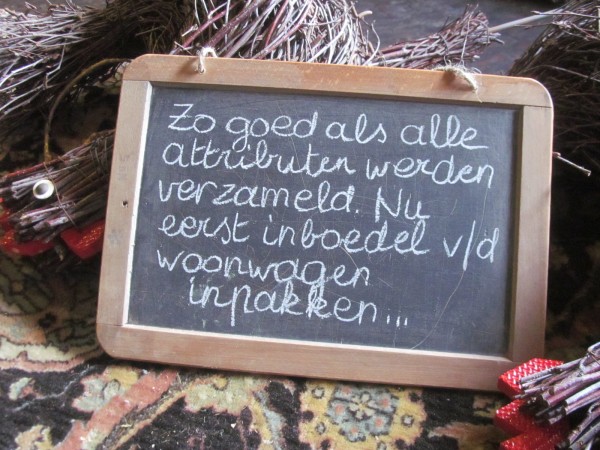 Zo goed als alle
attributen werden
verzameld. Nu
eerst inboedel v/d
woonwagen
inpakken...